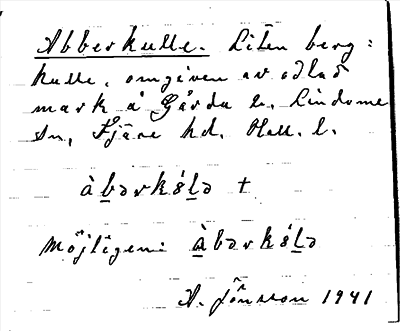 Abberkulle. Liten berg=
kulle, omgiven av odlad
mark å Gårda L. Lindome
sn, Fjäre hd. Hall. l.
àbərkǿlə +
Möjligen: àbərkǿlə
A. Jönsson 1941